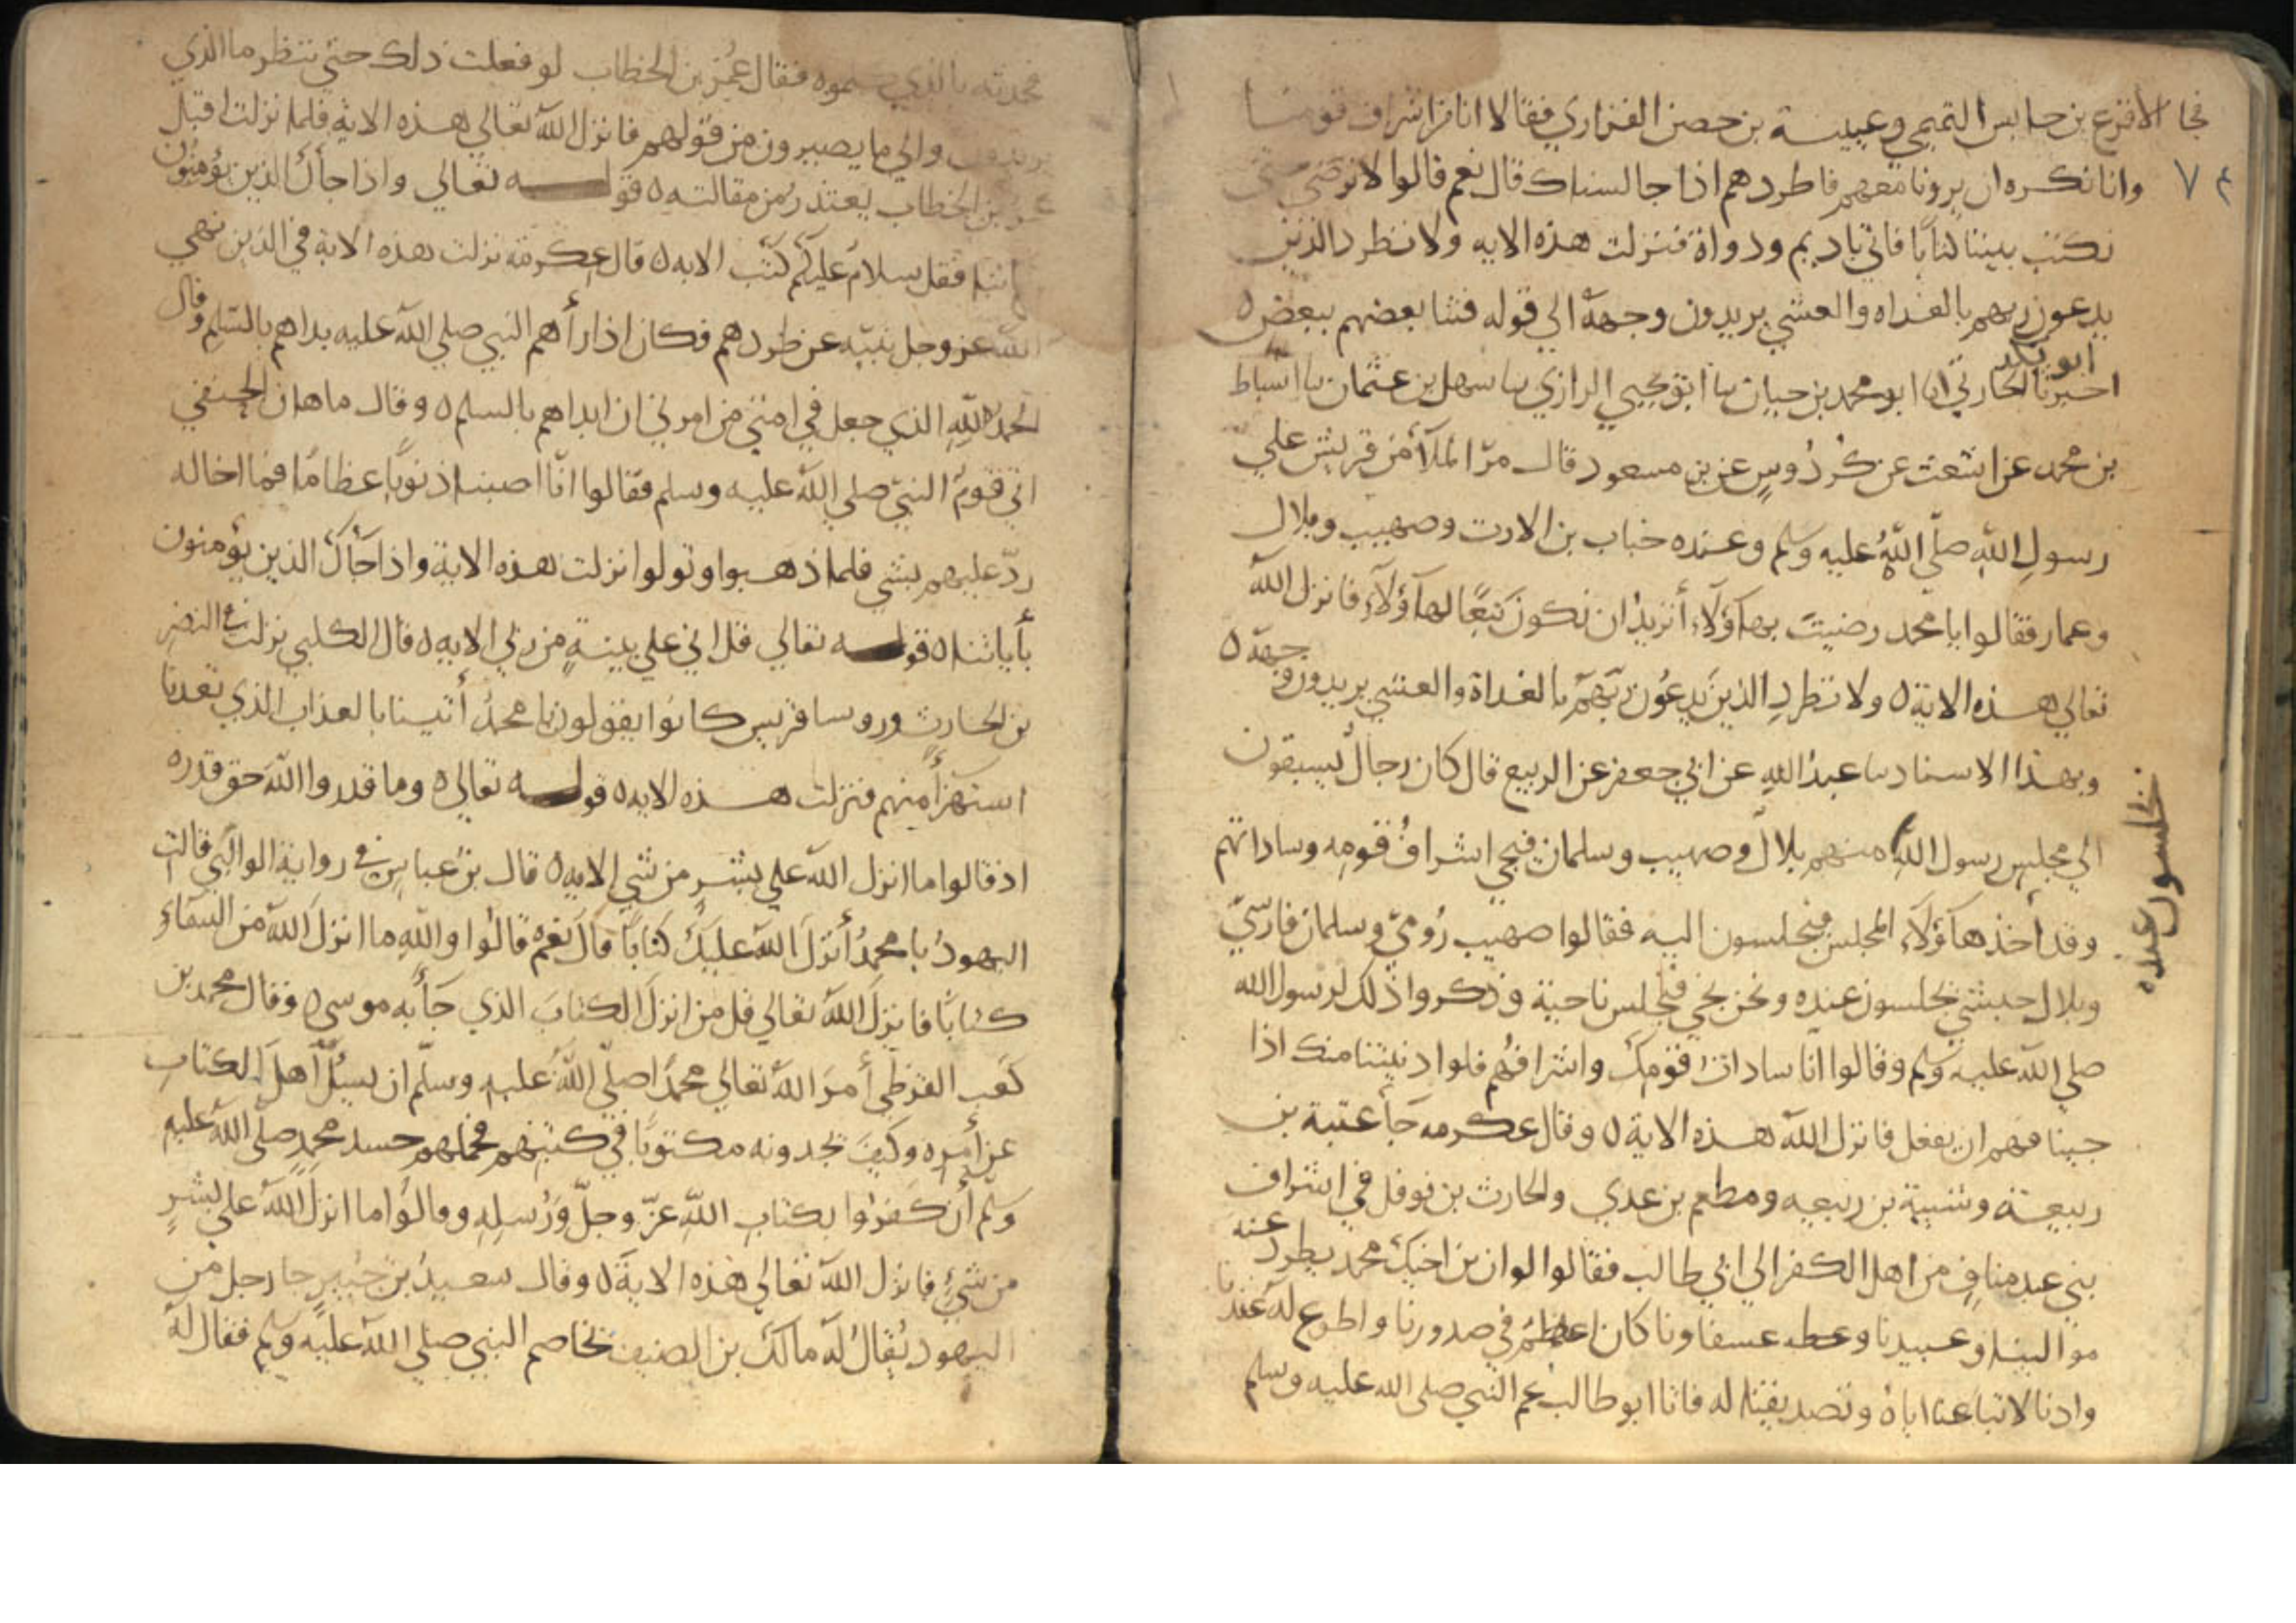 فجا الاقرع بن حابس التميمي وعيينة بن حصن الفزاري فقالا انا من اشراف قومنا
وانا نكره ان يرونا معهم فاطردهم اذا جالسناك قال نعم قالوا لا نرضي حتي
٧٤
نكتب بيننا كتابا فاتي باديم ودواة فنزلت هذه الايه ولا تطرد الذين
يدعون ربهم بالغداه والعشي يريدون وجهه الي قوله فتنا بعضهم ببعض ٥
ابو بكر
اخبرنا الحارثي انا ابو محمد بن حيان نا ابو يحيي الرازي نا سهل بن عثمان نا اسباط
بن محمد عن اشعث عن كردوس عن بن مسعود قال مر الملأ من قريش علي
رسول الله صلي الله عليه وسلم وعنده خباب بن الارت وصهيب وبلال
وعمار فقالوا يا محمد رضيت بهآؤلآء أتريد ان نكون تبعا لهآؤلآء فانزل الله
تعالي هذه الاية ٥ ولا تطرد الذين يدعون ربهم بالغداة والعشي يريدون وجهه ٥
وبهذا الاسناد نا عبد الله عن ابي جعفر عن الربيع قال كان رجال يسبقون
الي مجلس رسول الله منهم بلال وصهيب وسلمان فيجي اشراف قومه وساداتهم
وقد أخذ هآؤلآء المجلس فيجلسون اليه فقالوا صهيب رومي وسلمان فارسي
يجلسون عنده
وبلال حبشي يجلسون عنده ونحن نجي فنجلس ناحية وذكروا ذلك لرسول الله
صلي الله عليه وسلم وقالوا انا سادات قومك واشرافهم فلو ادنيتنا منك اذا
جينا فهم ان يفعل فانزل الله هذه الاية ٥ وقال عكرمه جأ عتبة بن
ربيعة وشيبة بن ربيعه ومطعم بن عدي والحارث بن نوفل في اشراف
بني عبد مناف من اهل الكفر الي ابي طالب فقالوا لو ان بن اخيك محمد يطرد عنه
موالينا وعبيدنا عسفاونا كان اعظم في صدورنا واطوع له عندنا
وادنا لاتباعنا اياه وتصديقنا له فاتا ابو طالب عم النبي صلي الله عليه وسلم
فحدثه بالذي كلموه فقال عمر بن الخطاب لو فعلت ذلك حتي ننظر ما الذي
يريدون والي ما يصيرون من قولهم فانزل الله تعالي هذه الاية فلما نزلت اقبل
عمر بن الخطاب يعتذر من مقالته ٥ قوله تعالي واذا جأك الذين يؤمنون
باياتنا فقل سلام عليكم كتب الايه ٥ قال عكرمة نزلت هذه الاية في الذين نهي
الله عز وجل نبيه عن طردهم فكان اذا رأهم النبي صلي الله عليه بداهم بالسلم وقال
الحمد لله الذي جعل في امتي من امرني ان ابداهم بالسلم ٥ وقال ماهان الحنفي
اتي قوم النبي صلي الله عليه وسلم فقالوا انا اصبنا ذنوبا عظاما فما اخاله
رد عليهم بشي فلما ذهبوا وتولوا نزلت هذه الاية واذا جأك الذين يؤمنون
بأياتنا ٥ قوله تعالي قل اني علي بينة من ربي الايه ٥ قال الكلبي نزلت في النضر
بن الحارث وروسا قريس كانوا يقولون يا محمد أتينا بالعذاب الذي تعدنا
استهزأ منهم فنزلت هذه الايه ٥ قوله تعالي ٥ وما قدروا الله حق قدره
اذ قالوا ما انزل الله علي بشر من شي الايه ٥ قال بن عباس في رواية الوالبي قالت
اليهود يا محمد أنزل الله عليك كتابا قال نعم قالوا والله ما انزل الله من السماء
كتابا فانزل الله تعالي قل من انزل الكتاب الذي جأ به موسي ٥ وقال محمد بن
كعب القرظي أمر الله تعالي محمدا صلي الله عليه وسلم ان يسئل اهل الكتاب
عن أمره وكيف يجدونه مكتوبا في كتبهم فحملهم حسد محمد صلي الله عليه
وسلم أن كفروا بكتاب الله عز وجل ورسله وقالوا ما انزل الله علي بشر
من شئ فانزل الله تعالي هذه الاية ٥ وقال سعيد بن جبير جا رجل من
اليهود يقال له مالك بن الصيف يخاصم النبي صلي الله عليه وسلم فقال له